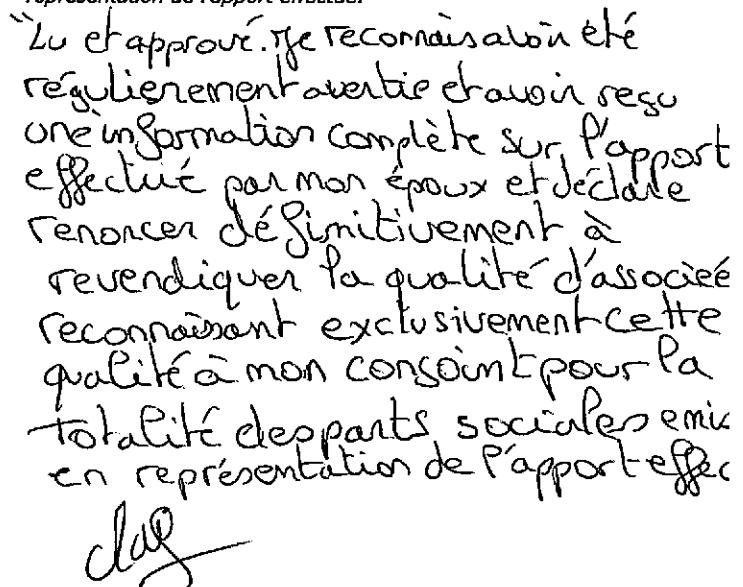 représentation de l'apport effectué.
"Lu et approuvé. Je reconnais avoir été
régulièrement avertie et avoir reçu
une information complète sur l'apport
effectué par mon époux et déclare
renoncer définitivement à
revendiquer la qualité d'associée
reconnaissant exclusivement cette
qualité à mon conjoint pour la
totalité des parts sociales emis
en représentation de l'apport effec